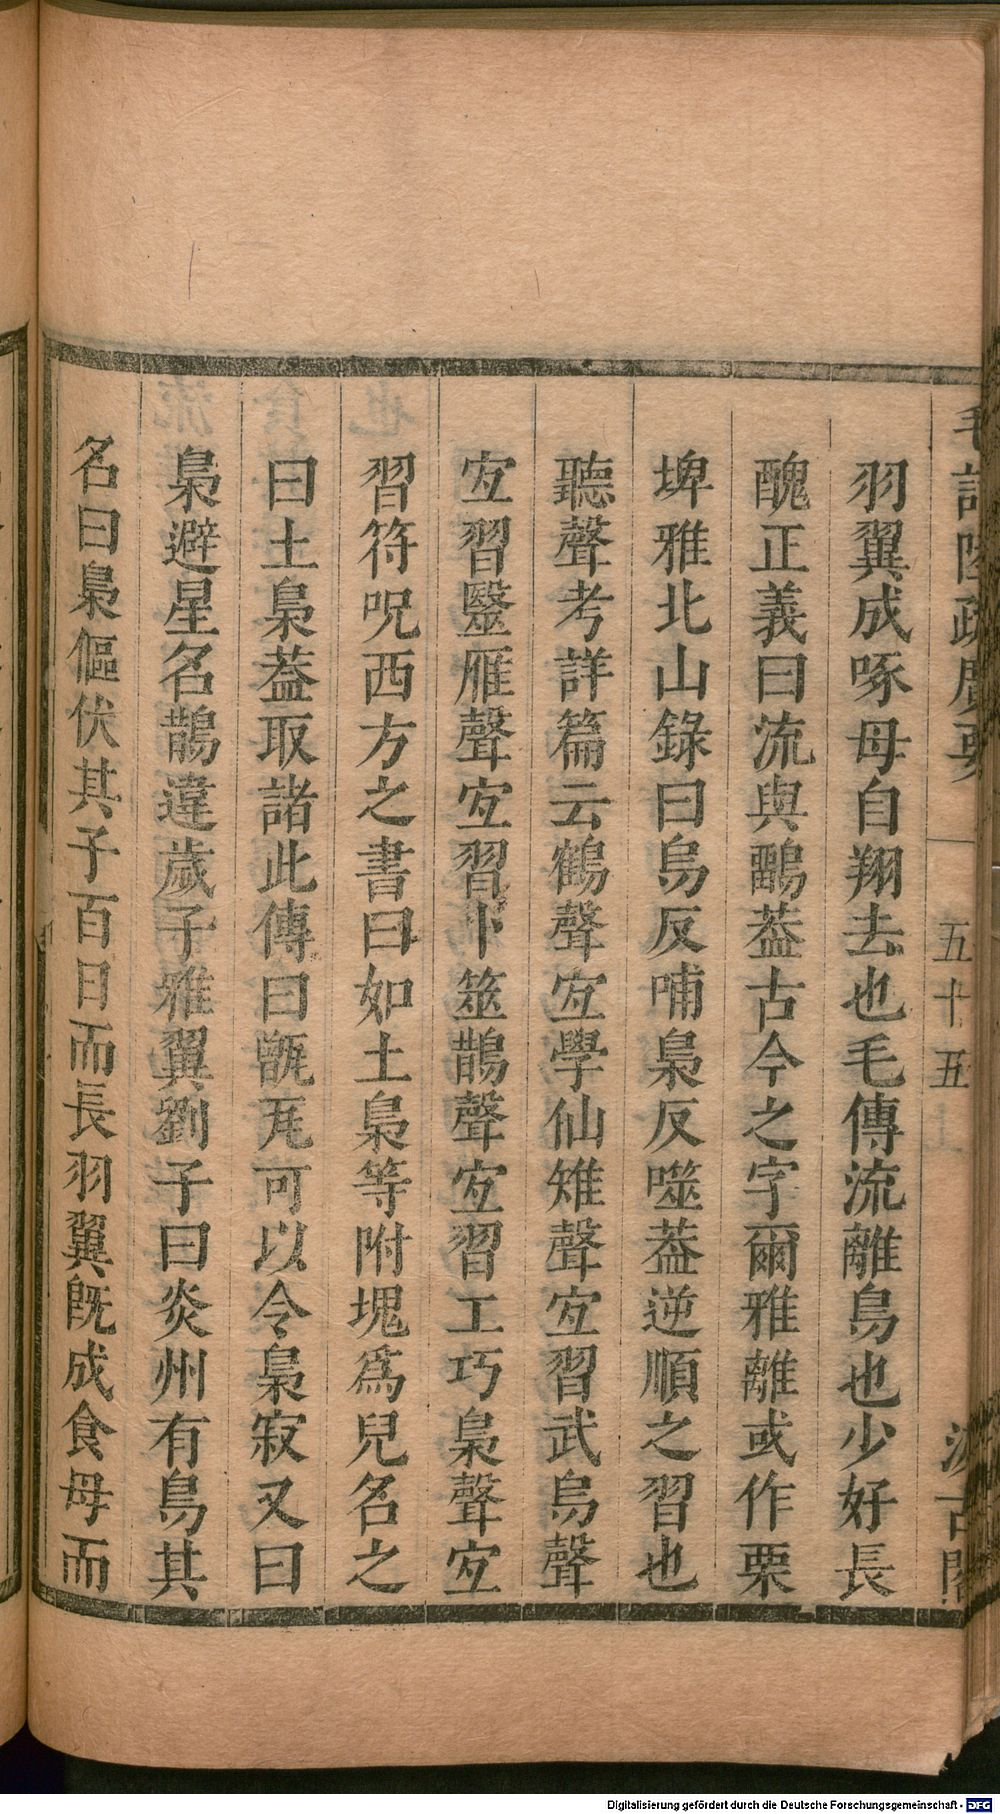 毛詩陸疏廣要
五十五
汲古閣
羽翼成啄母自翔去也毛傳流離鳥也少好長
醜正義曰流與鶹葢古今之字爾雅離或作栗
埤雅北山錄曰烏反哺梟反噬葢逆順之習也
聽聲考詳篇云鶴聲宐學仙雉聲宐習武烏聲
宐習毉雁聲宐習卜筮鵲聲宐習工巧梟聲宐
習符呪西方之書曰如土梟等附塊爲兒名之
曰土梟葢取諸此傳曰甑瓦可以令梟寂又曰
梟避星名鵲違歲子雅翼劉子曰炎州有鳥其
名曰梟傴伏其子百日而長羽翼旣成食母而
Digitalisierung gefördert durch die Deutsche Forschungsgemeinschaft - DFG